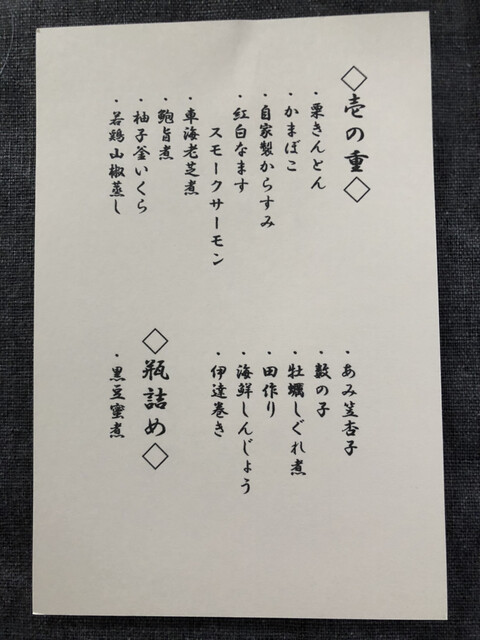 ◇壱の重◇
・栗きんとん
・かまぼこ
・自家製からすみ
・紅白なます
スモークサーモン
・車海老芝煮
・鮑旨煮
・柚子釜いくら
・若鶏山椒蒸し
・あみ笠杏子
・数の子
・牡蠣しぐれ煮
・田作り
・海鮮しんじょう
・伊達巻き
◇瓶詰め◇
・黒豆蜜煮